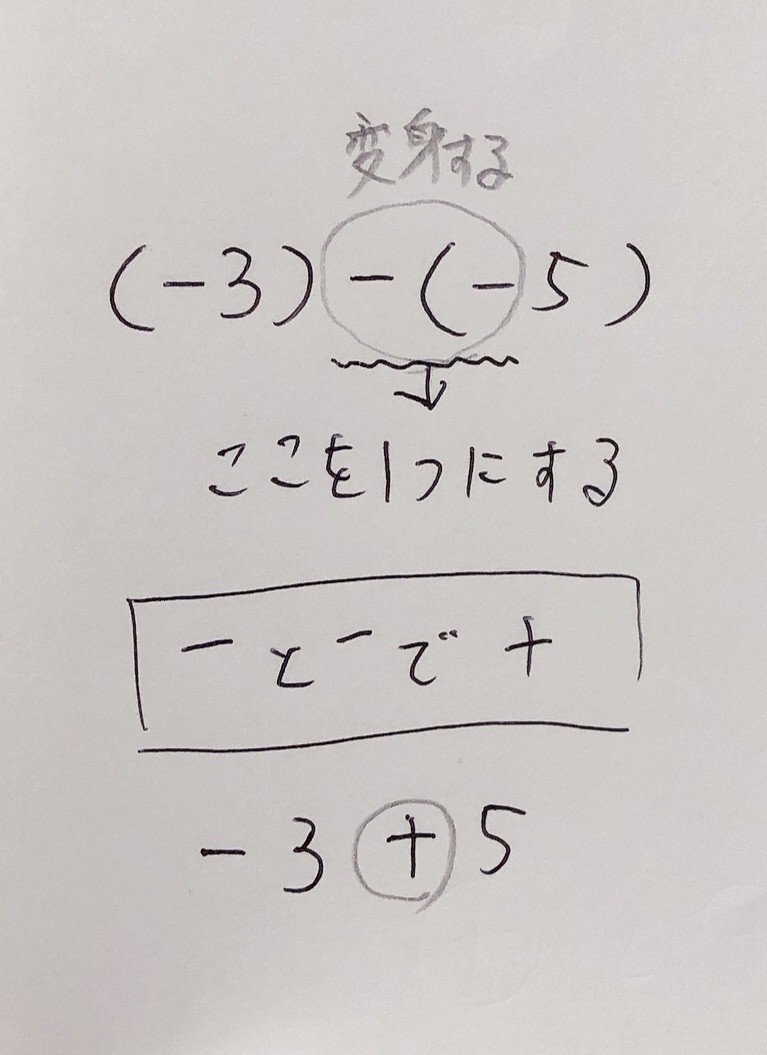 変身する
(-3)-(-5)
ここを1つにする
-と-で+
-3+5